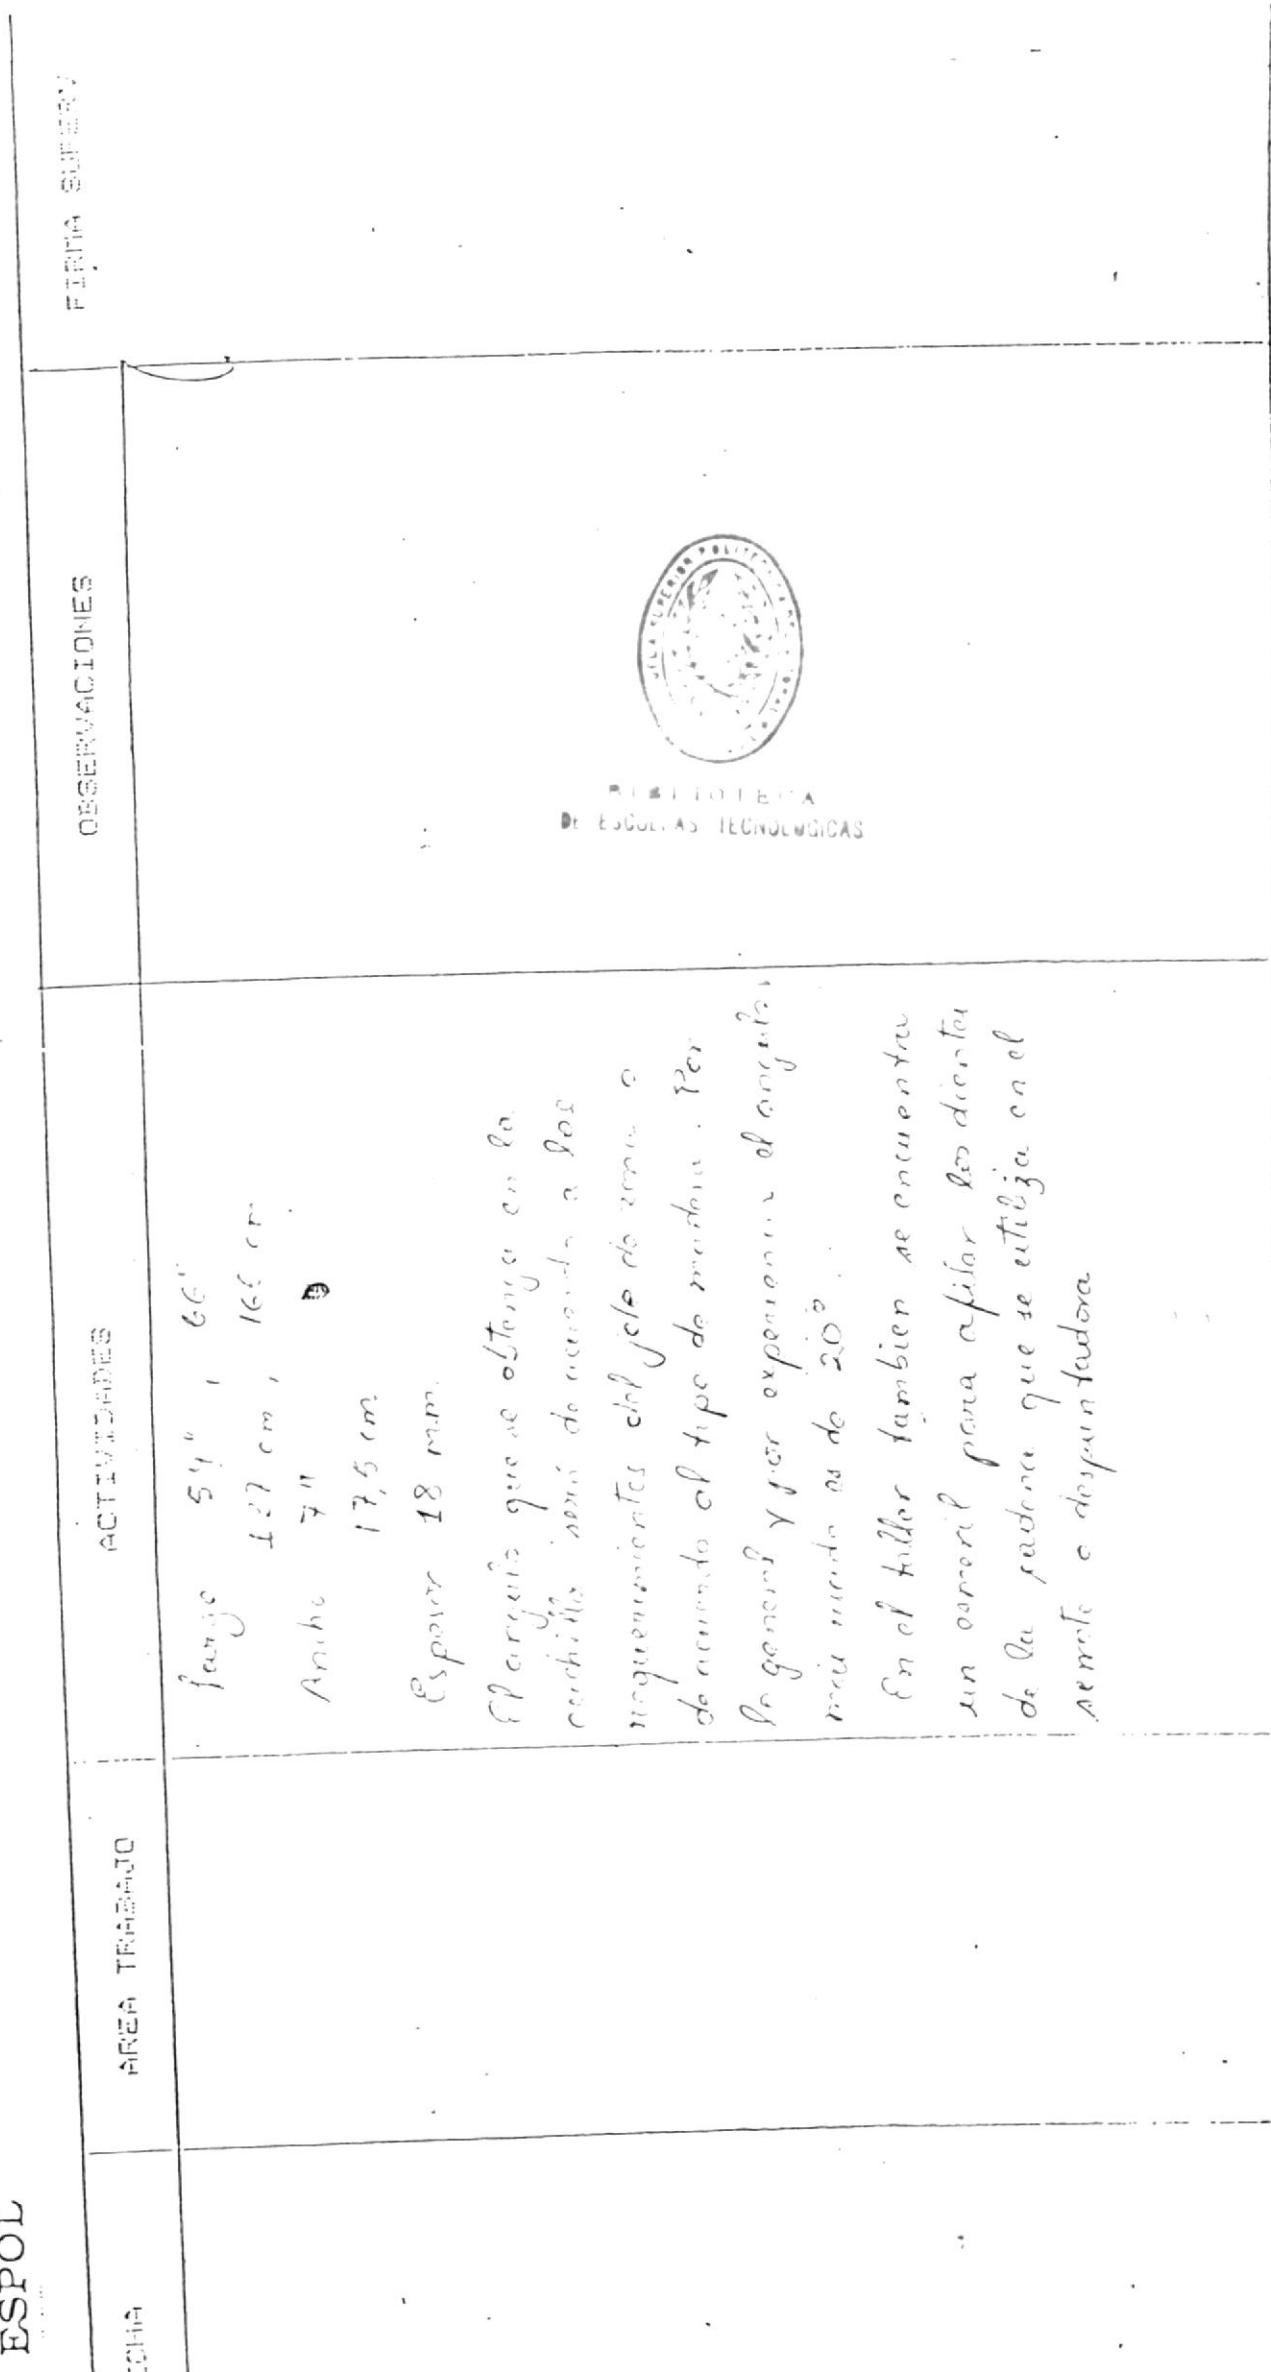 ESPOL
ECHA
AREA TRABAJO
ACTIVIDADES
OBSERVACIONES
FIRMA SUPERV
Largo 54" , 66"
137 cm , 166 cm
Ancho 7"
17,5 cm
Espesor 18 mm.
El angulo que se obtenga en la
cuchilla será de acuerdo a los
requerimientos del jefe de area o
de acuerdo al tipo de madera. Por
lo general y por experiencia el angulo
más usado es de 20°.
En el taller tambien se encuentra
un esmeril para afilar los dientes
de la cadena que se utiliza en el
semote o despuntadora
BIBLIOTECA
DE ESCUELAS TECNOLOGICAS